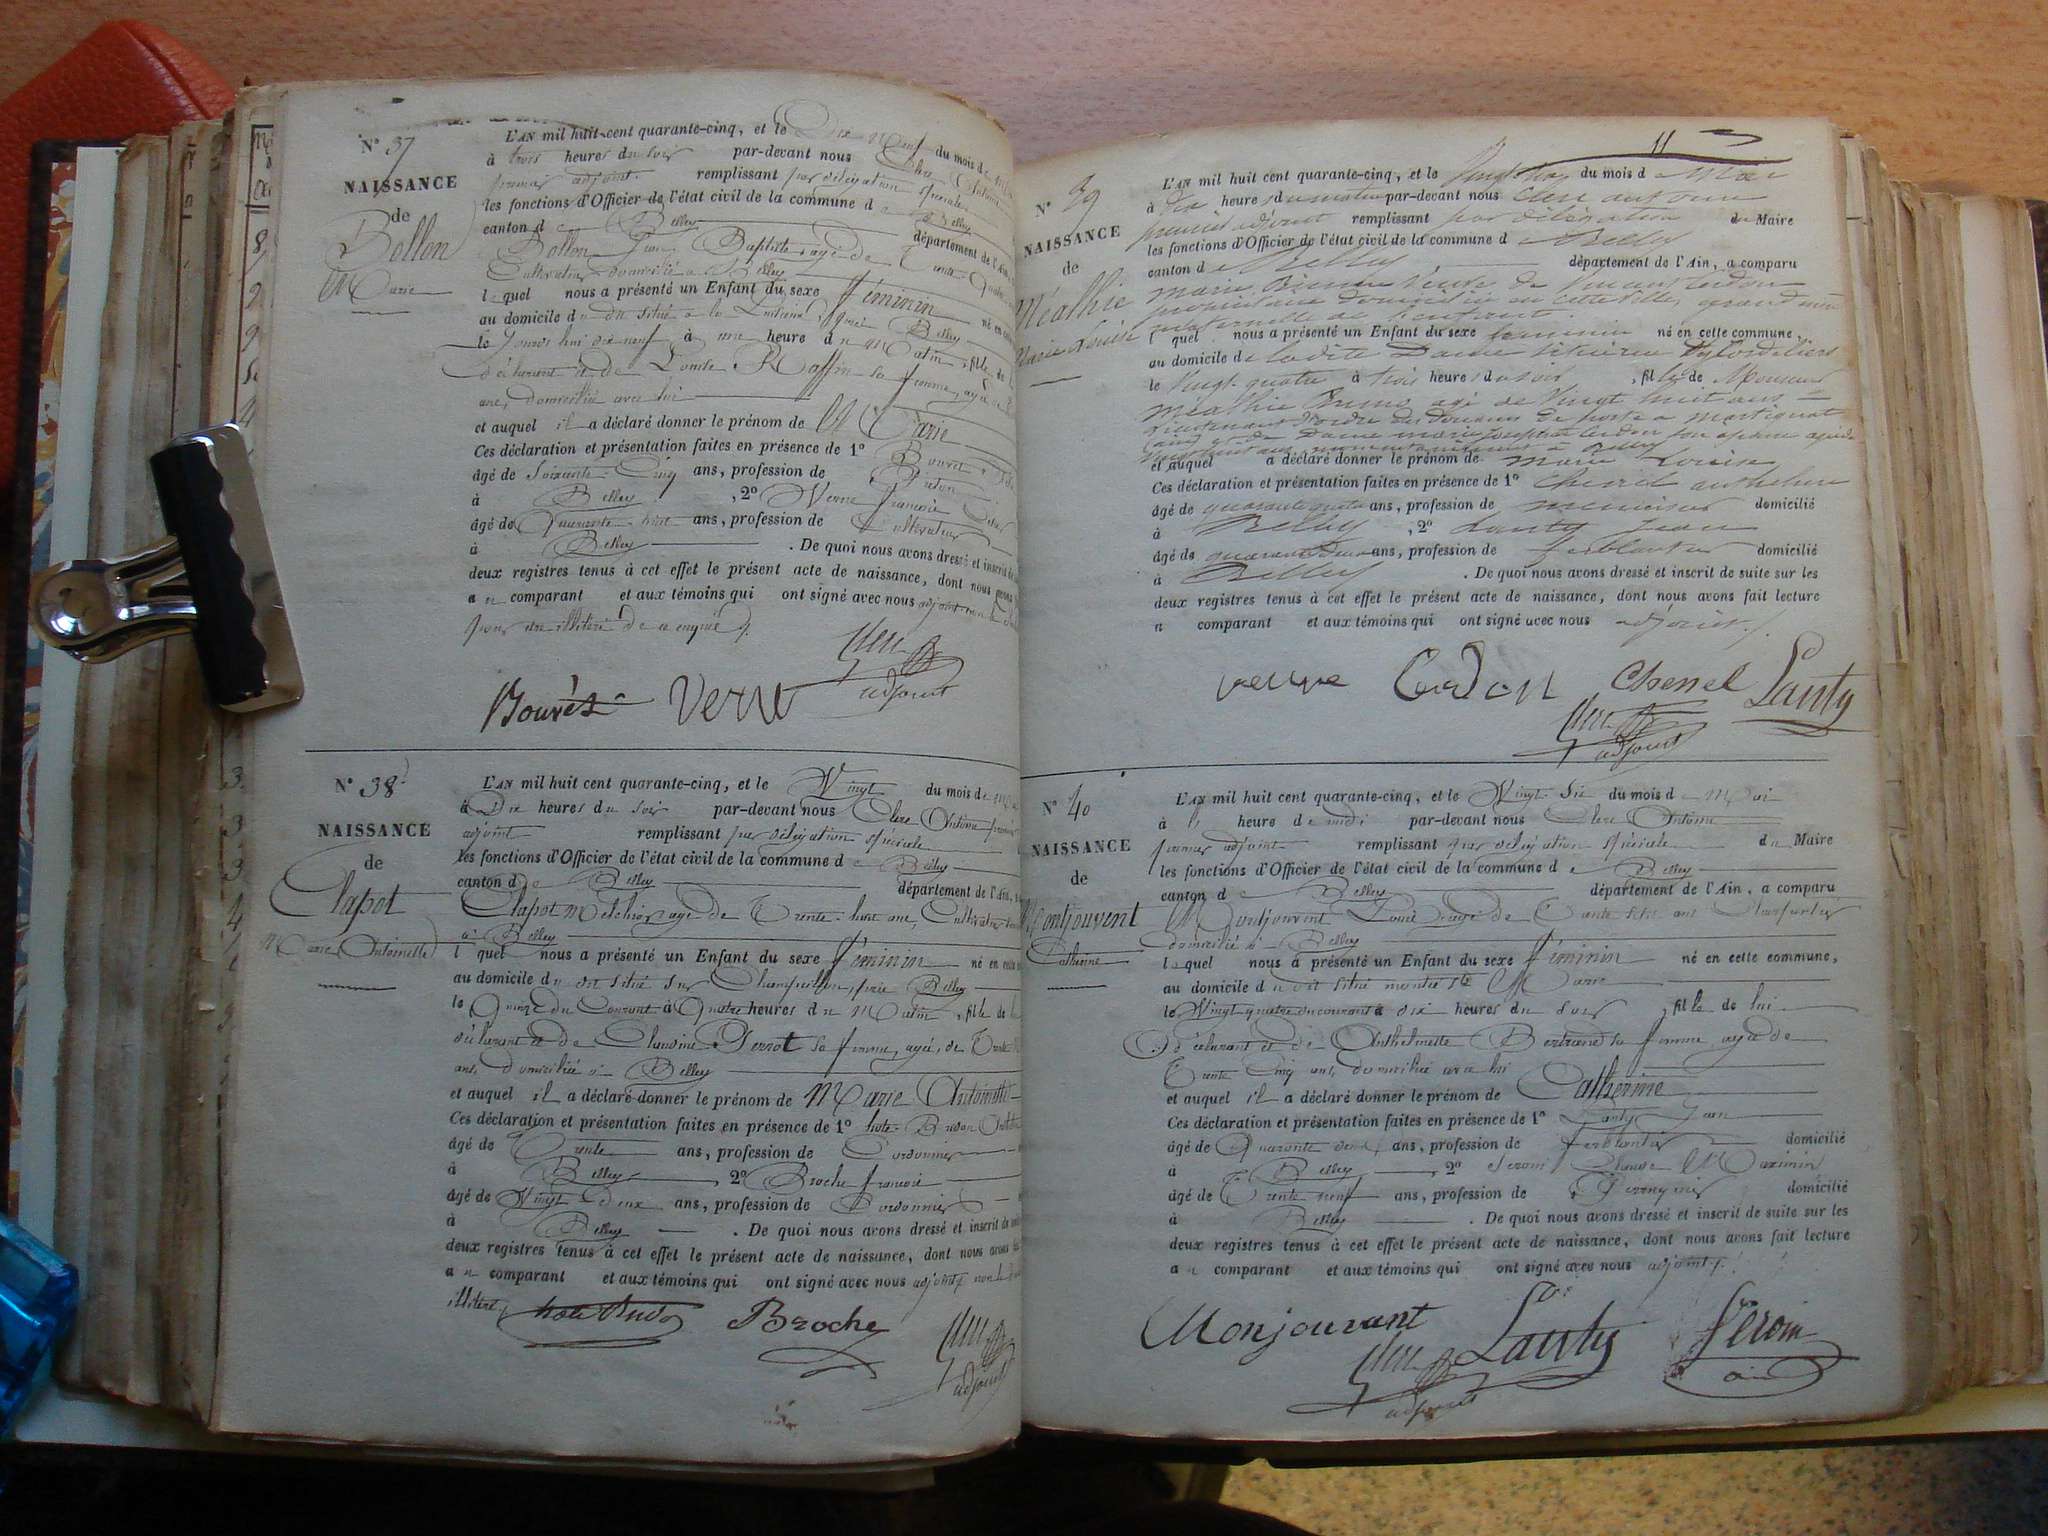 N° 37
NAISSANCE
de
Bollon
Marie
L'AN mil huit cent quarante-cinq, et le Dix neuf du mois de
à trois heures du soir par-devant nous Clerc Antoine
premier adjoint remplissant par délégation spéciale
les fonctions d'Officier de l'état civil de la commune d
canton de Belley département de l'Ain,
Bollon Jean Baptiste, agé de
Cultivateur domicilié à Belley
lequel nous a présenté un Enfant du sexe féminin né en
au domicile du dit situé à la
le jourd'hui dix neuf à une heure du Matin, fille de
déclarant et de Louise Raffin sa femme, agée
ans, domiciliée avec lui
et auquel il a déclaré donner le prénom de Marie
Ces déclaration et présentation faites en présence de 1°
âgé de Soixante-Cinq ans, profession de
à Belley, 2° Verne françois
âgé de Quarante-huit ans, profession de Cultivateur
à Belley. De quoi nous avons dressé et inscrit de
deux registres tenus à cet effet le présent acte de naissance, dont nous avons
au comparant et aux témoins qui ont signé avec nous adjoint non le
pour être illitéré de ce enquis
Bouvès Verne
adjoint
N° 38
NAISSANCE
de
Clapot
Marie Antoinette
L'AN mil huit cent quarante-cinq, et le Vingt du mois de
à Dix heures du soir par-devant nous Clerc Antoine premier
adjoint remplissant par délégation spéciale
les fonctions d'Officier de l'état civil de la commune de Belley
canton de Belley département de l'Ain,
Clapot Melchior, agé de Trente-huit ans, Cultivateur
à Belley
lequel nous a présenté un Enfant du sexe féminin né en cette
au domicile du dit situé sur Champollon, près Belley
le Quinze du Courant à Quatre heures du Matin, fille de
déclarant et de Claudine Perrot sa femme, agée, de Trente
ans, domiciliée à Belley
et auquel il a déclaré donner le prénom de Marie Antoinette
Ces déclaration et présentation faites en présence de 1°
âgé de Trente ans, profession de Cordonnier
à Belley, 2° Broche françois
âgé de Vingt deux ans, profession de Cordonnier
à Belley. De quoi nous avons dressé et inscrit de
deux registres tenus à cet effet le présent acte de naissance, dont nous avons
au comparant et aux témoins qui ont signé avec nous adjoint non le
illitéré
Broche
adjoint
11
N° 39
NAISSANCE
de
Méathie
Marie Louise
L'AN mil huit cent quarante-cinq, et le Vingt six du mois de Mai
à Dix heures du matin par-devant nous Clerc antoine
premier adjoint remplissant par délégation du Maire
les fonctions d'Officier de l'état civil de la commune de Belley
canton de Belley département de l'Ain, a comparu
marie veuve de
propriétaire domiciliée en cette ville, grand mère
maternelle de l'enfant.
l quel nous a présenté un Enfant du sexe feminin né en cette commune,
au domicile de ladite Dame située rue des Cordeliers
le Vingt-quatre à trois heures du soir, fille de Monsieur
Méathie Bruno agé de vingt huit ans,
lieutenant d'ordre des douanes de poste à Martignat
et auquel a déclaré donner le prénom de marie Louise
Ces déclaration et présentation faites en présence de 1° Chenel anthelme
âgé de quarante quatre ans, profession de menuisier domicilié
à Belley, 2° Lanty Jean
âgé de quarante deux ans, profession de ferblantier domicilié
à Belley. De quoi nous avons dressé et inscrit de suite sur les
deux registres tenus à cet effet le présent acte de naissance, dont nous avons fait lecture
a comparant et aux témoins qui ont signé avec nous adjoint.
veuve Cerdon Chenel Lanty
adjoint
N° 40
NAISSANCE
de
Montjouvent
Catherine
L'AN mil huit cent quarante-cinq, et le Vingt Six du mois de Mai
à heure de midi par-devant nous Clerc Antoine
premier adjoint remplissant par délégation spéciale du Maire
les fonctions d'Officier de l'état civil de la commune de Belley
canton de Belley département de l'Ain, a comparu
Montjouvent Louis agé de Trente Sept ans
domicilié à Belley
lequel nous a présenté un Enfant du sexe féminin né en cette commune,
au domicile du dit situé montée Ste Marie
le Vingt quatre du courant à six heures du soir, fille de lui
déclarant et de Anthelmette Bertrand sa femme, agée de
Trente Cinq ans, domiciliée avec lui
et auquel il a déclaré donner le prénom de Catherine
Ces déclaration et présentation faites en présence de 1° Lanty Jean
âgé de Quarante deux ans, profession de ferblantier domicilié
à Belley, 2° Claude Maximin
âgé de Trente neuf ans, profession de domicilié
à Belley. De quoi nous avons dressé et inscrit de suite sur les
deux registres tenus à cet effet le présent acte de naissance, dont nous avons fait lecture
au comparant et aux témoins qui ont signé avec nous adjoint.
Monjouvant Lanty
adjoint